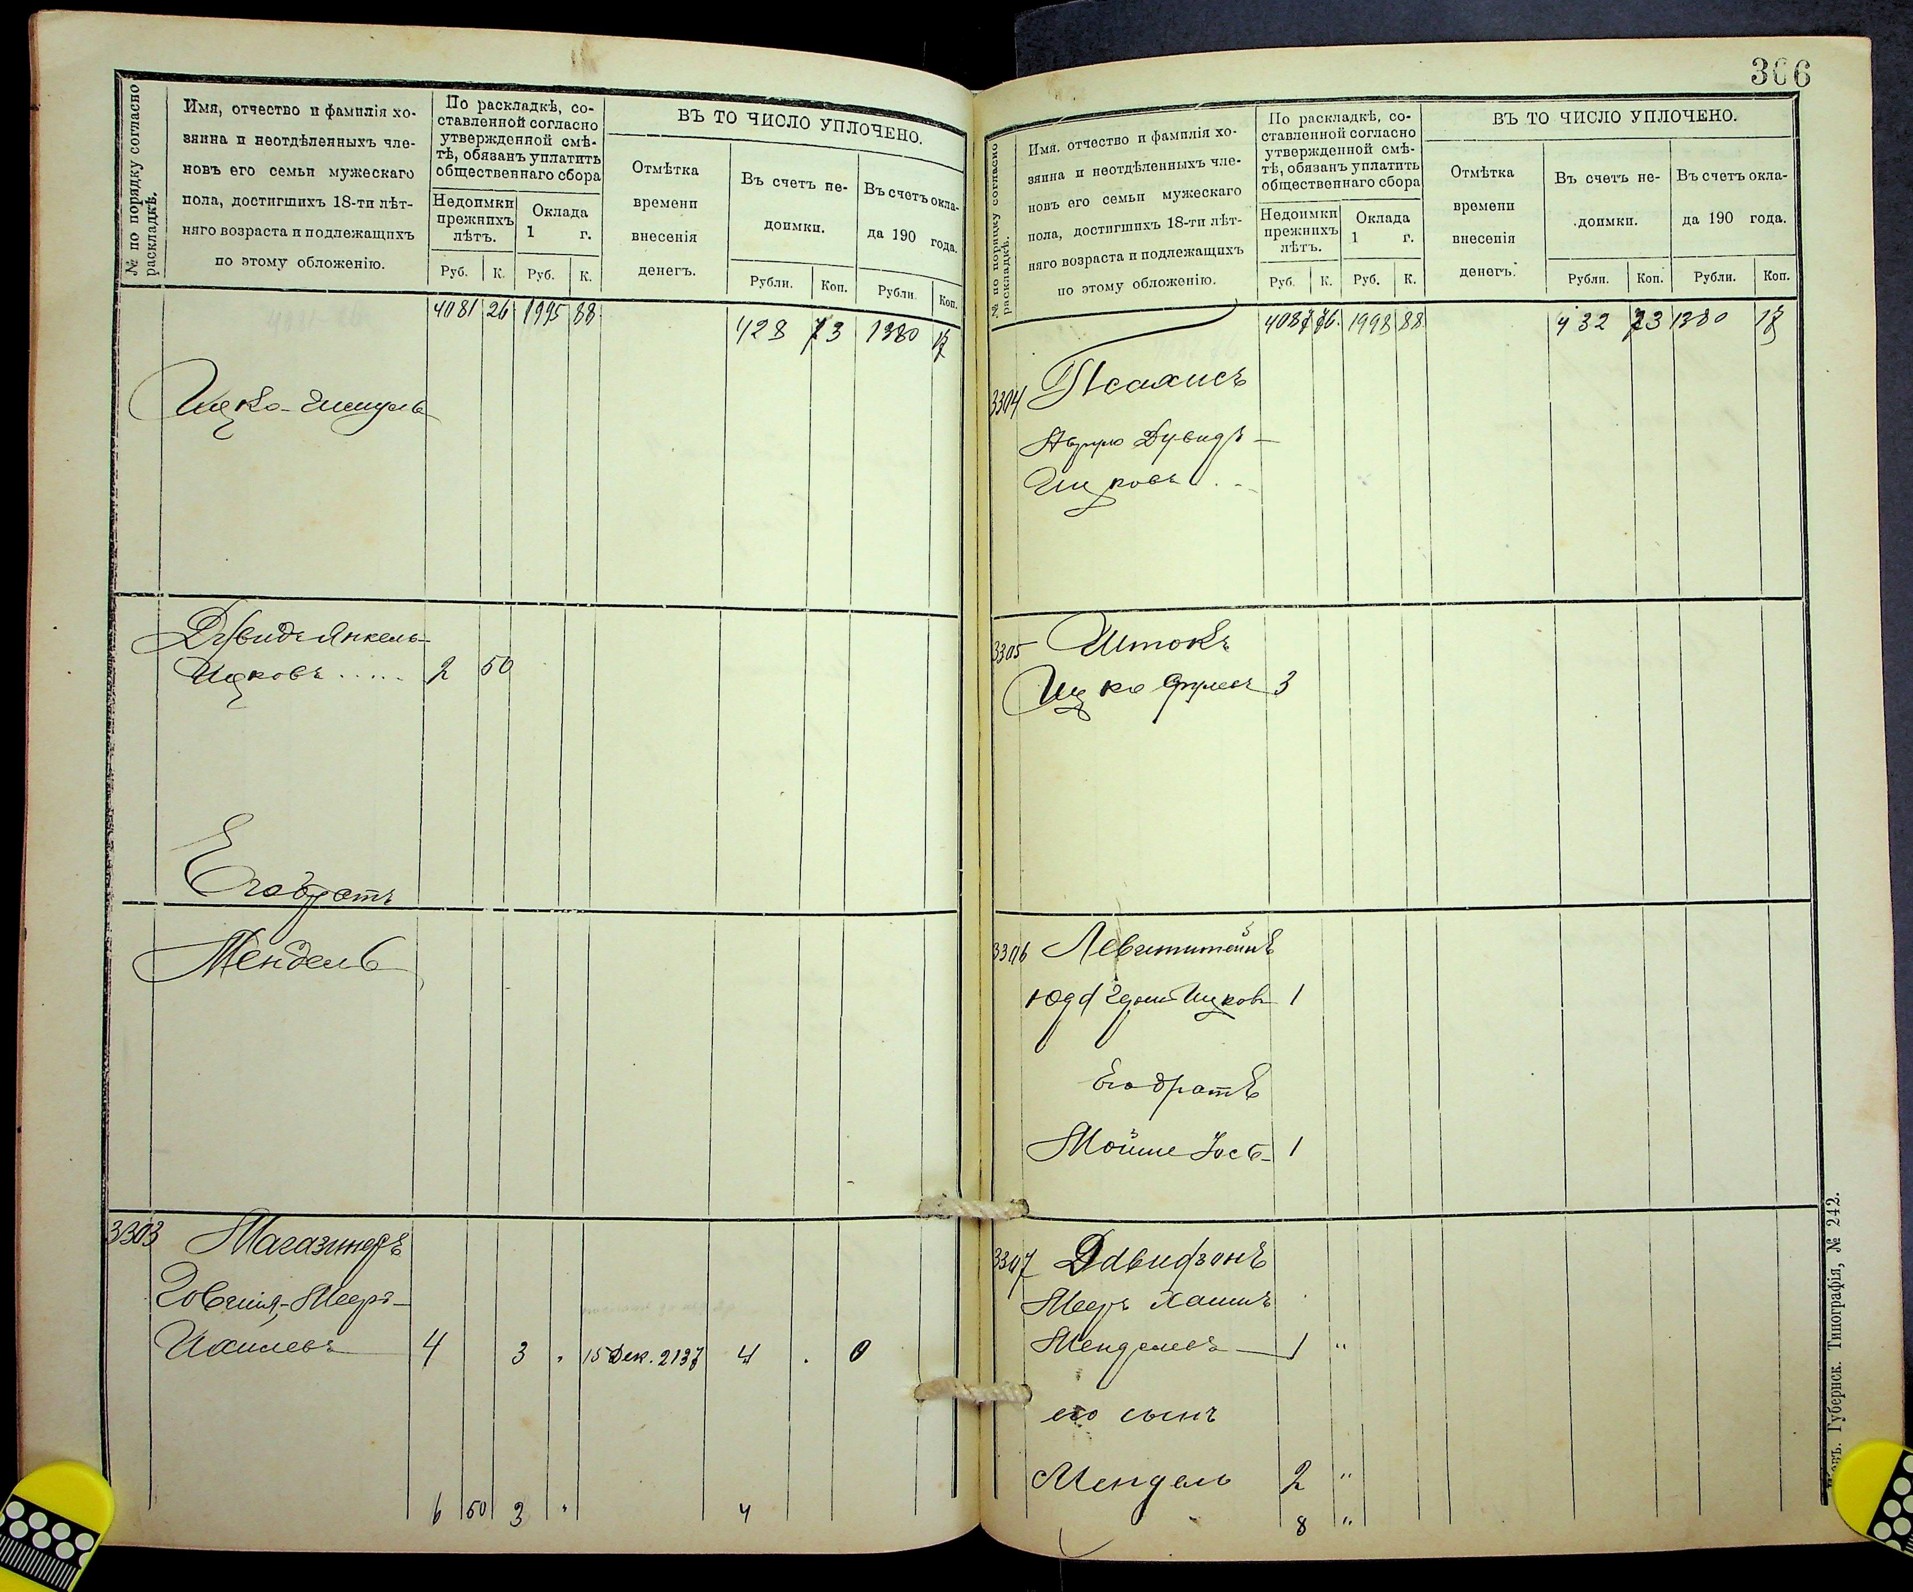 № по порядку согласно раскладкѣ.
Имя, отчество и фамилія хо-
зяина и неотдѣленныхъ чле-
новъ его семьи мужескаго
пола, достигшихъ 18-ти лѣт-
няго возраста и подлежащихъ
по этому обложенію.
По раскладкѣ, со-
ставленной согласно
утвержденной смѣ-
тѣ, обязанъ уплатить
общественнаго сбора
Недоимки прежнихъ лѣтъ.
Оклада 1 г.
Руб. К. Руб. К.
ВЪ ТО ЧИСЛО УПЛОЧЕНО.
Отмѣтка
времени
внесенія
денегъ.
Въ счетъ не-
доимки.
Въ счетъ окла-
да 190 года.
Рубли. Коп. Рубли. Коп.
4081 26 1995 88 428 73 1380 17
Ицко-Шмуль
Дувидъ Янкель-
Ицковъ ..... 2 50
Его братъ
Мендель
3303 Магазинеръ
Мееръ-
4 3 " 15 Дек. 2137 4 . 0
6 50 3 " 4
366
№ по порядку согласно раскладкѣ.
Имя, отчество и фамилія хо-
зяина и неотдѣленныхъ чле-
новъ его семьи мужескаго
пола, достигшихъ 18-ти лѣт-
няго возраста и подлежащихъ
по этому обложенію.
По раскладкѣ, со-
ставленной согласно
утвержденной смѣ-
тѣ, обязанъ уплатить
общественнаго сбора
Недоимки прежнихъ лѣтъ.
Оклада 1 г.
Руб. К. Руб. К.
ВЪ ТО ЧИСЛО УПЛОЧЕНО.
Отмѣтка
времени
внесенія
денегъ.
Въ счетъ не-
доимки.
Въ счетъ окла-
да 190 года.
Рубли. Коп. Рубли. Коп.
4087 76 1998 88 432 73 1380 17
3304 Псахисъ
Дувидъ-
Ицковъ
3305 Штокъ
Ицко 3
3306 Левинштейнъ
Ицковъ 1
Его братъ
Мойше Іосъ- 1
3307 Давидзонъ
Мееръ Хаимъ
Менделевъ 1 "
его сынъ
Мендель 2 "
8 "
Губернск. Типографія, № 242.